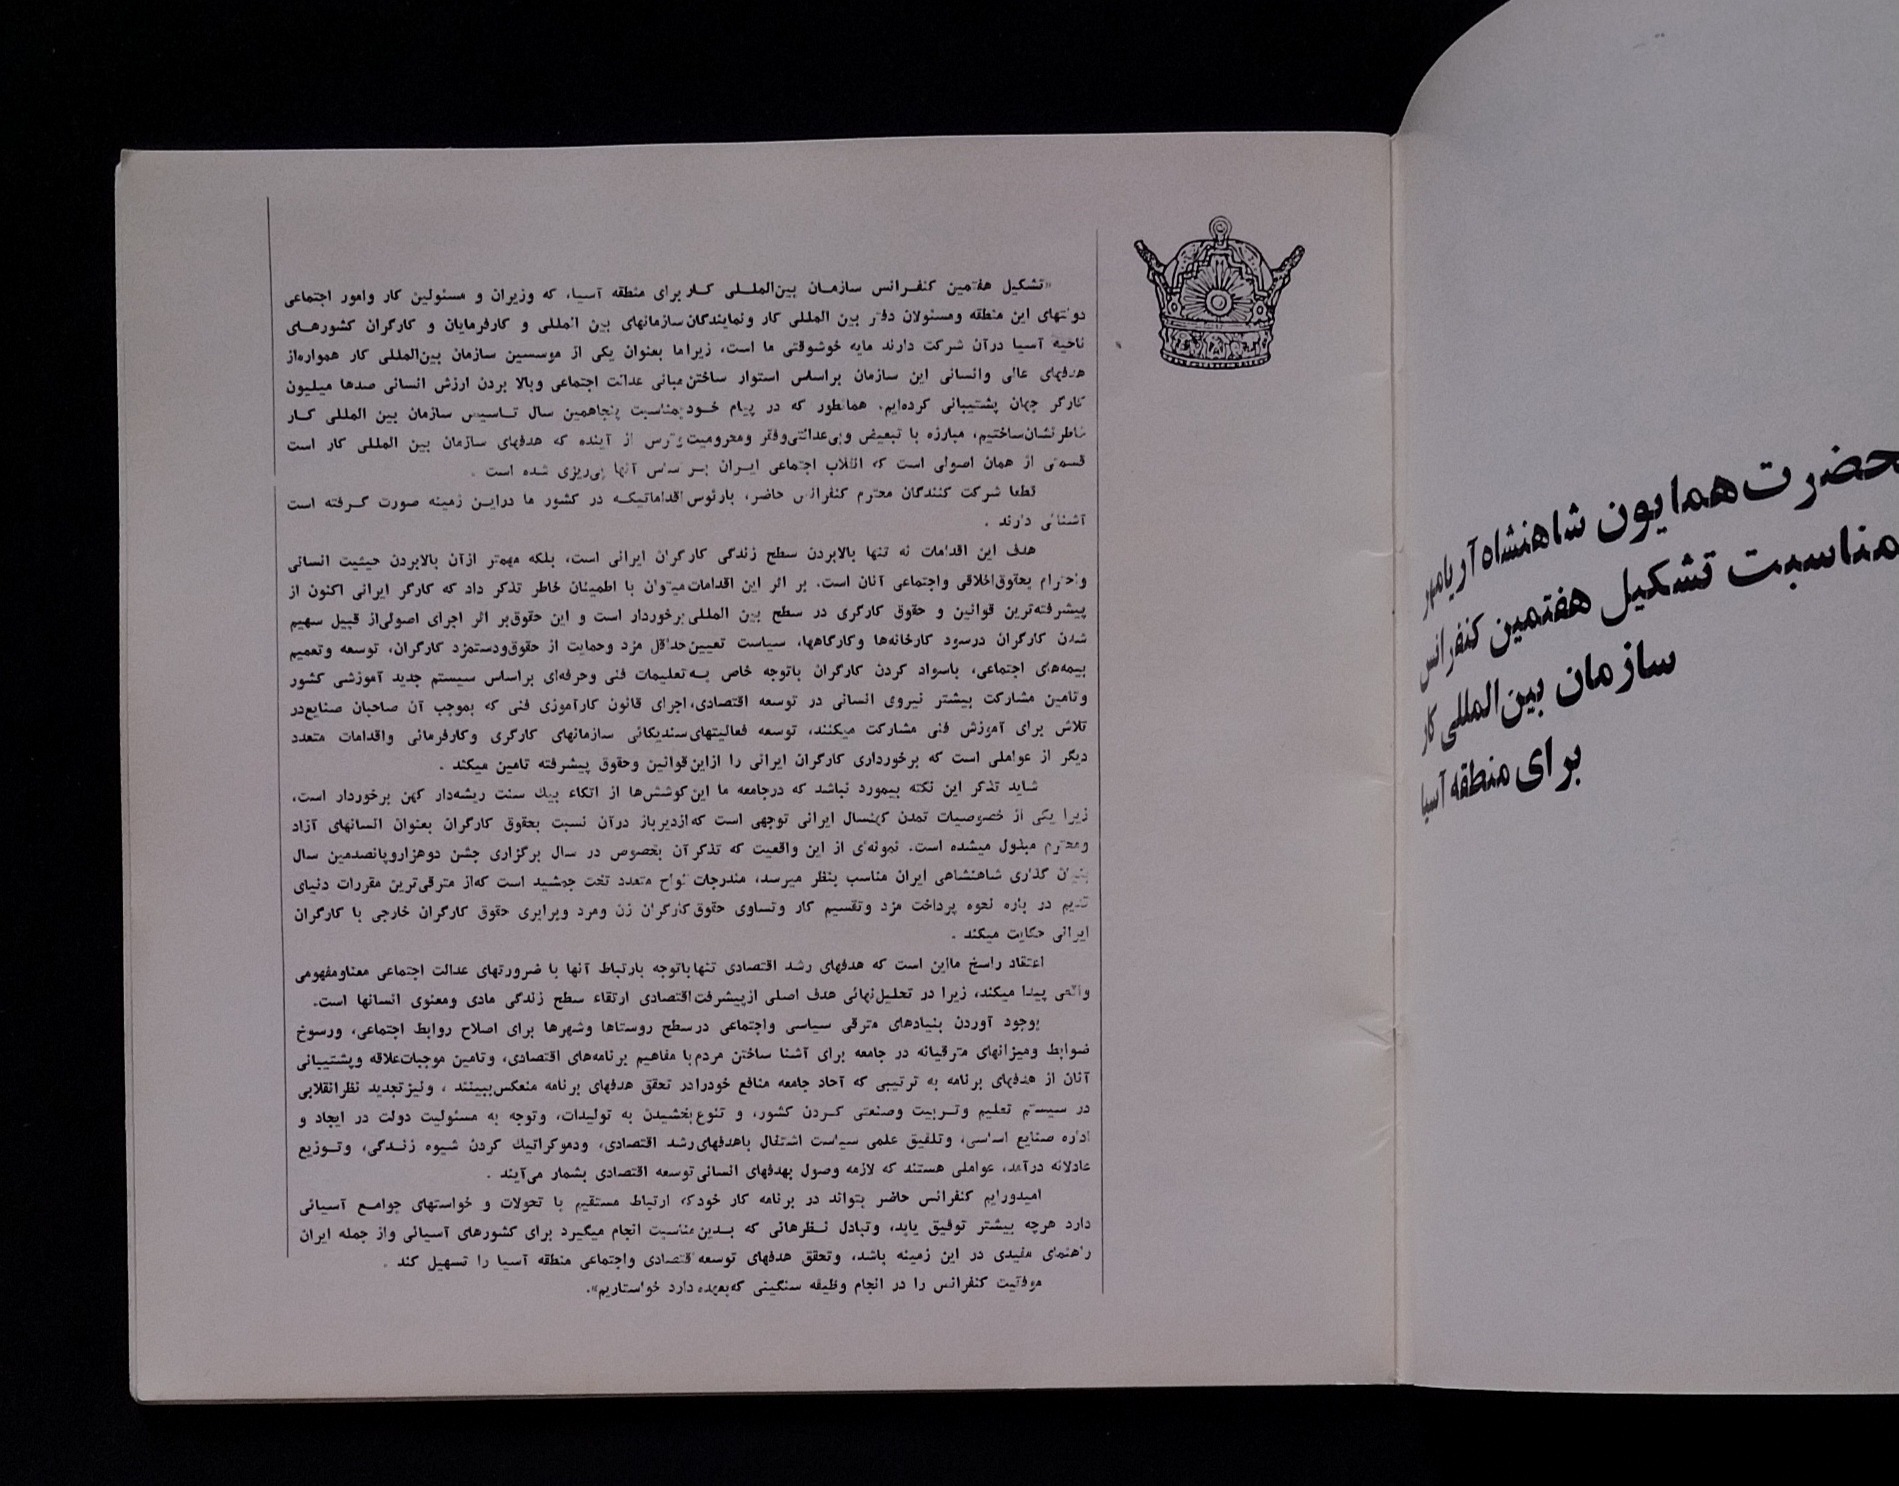 حضرت همایون شاهنشاه آریامهر
مناسبت تشکیل هفتمین کنفرانس
سازمان بین‌المللی کار
برای منطقه آسیا
«تشکیل هفتمین کنفرانس سازمان بین‌المللی کار برای منطقه آسیا، که وزیران و مسئولین کار وامور اجتماعی
دولتهای این منطقه ومسئولان دفتر بین المللی کار ونمایندگان سازمانهای بین المللی و کارفرمایان و کارگران کشورهای
ناحیه آسیا درآن شرکت دارند مایه خوشوقتی ما است، زیراما بعنوان یکی از موسسین سازمان بین‌المللی کار همواره‌از
هدفهای عالی وانسانی این سازمان براساس استوار ساختن مبانی عدالت اجتماعی وبالا بردن ارزش انسانی صدها میلیون
کارگر جهان پشتیبانی کرده‌ایم. همانطور که در پیام خود بمناسبت پنجاهمین سال تاسیس سازمان بین المللی کار
خاطرنشان‌ساختیم، مبارزه با تبعیض وبی‌عدالتی‌وفقر ومحرومیت وترس از آینده که هدفهای سازمان بین المللی کار است
قسمتی از همان اصولی است که انقلاب اجتماعی ایران بر اساس آنها پی‌ریزی شده است .
قطعا شرکت کنندگان محترم کنفرانس حاضر، بارئوس اقداماتیکه در کشور ما دراین زمینه صورت گرفته است
آشنائی دارند .
هدف این اقدامات نه تنها بالابردن سطح زندگی کارگران ایرانی است، بلکه مهمتر ازآن بالابردن حیثیت انسانی
واحترام بحقوق‌اخلاقی واجتماعی آنان است. بر اثر این اقدامات میتوان با اطمینان خاطر تذکر داد که کارگر ایرانی اکنون از
پیشرفته‌ترین قوانین و حقوق کارگری در سطح بین المللی برخوردار است و این حقوق‌بر اثر اجرای اصولی‌از قبیل سهیم
شدن کارگران درسود کارخانه‌ها وکارگاهها، سیاست تعیین حداقل مزد وحمایت از حقوق‌ودستمزد کارگران، توسعه وتعمیم
بیمه‌های اجتماعی، باسواد کردن کارگران باتوجه خاص به تعلیمات فنی وحرفه‌ای براساس سیستم جدید آموزشی کشور
وتامین مشارکت بیشتر نیروی انسانی در توسعه اقتصادی، اجرای قانون کارآموزی فنی که بموجب آن صاحبان صنایع‌در
تلاش برای آموزش فنی مشارکت میکنند، توسعه فعالیتهای سندیکائی سازمانهای کارگری وکارفرمائی واقدامات متعدد
دیگر از عواملی است که برخورداری کارگران ایرانی را ازاین قوانین وحقوق پیشرفته تامین میکند .
شاید تذکر این نکته بیمورد نباشد که درجامعه ما این کوشش‌ها از اتکاء بیك سنت ریشه‌دار کهن برخوردار است،
زیرا یکی از خصوصیات تمدن کهنسال ایرانی توجهی است که ازدیرباز درآن نسبت بحقوق کارگران بعنوان انسانهای آزاد
ومحترم مبذول میشده است. نمونه‌ای از این واقعیت که تذکر آن بخصوص در سال برگزاری جشن دوهزاروپانصدمین سال
بنیان گذاری شاهنشاهی ایران مناسب بنظر میرسد، مندرجات الواح متعدد تخت جمشید است که‌از مترقی‌ترین مقررات دنیای
قدیم در باره نحوه پرداخت مزد وتقسیم کار وتساوی حقوق کارگران زن ومرد وبرابری حقوق کارگران خارجی با کارگران
ایرانی حکایت میکند .
اعتقاد راسخ مااین است که هدفهای رشد اقتصادی تنها باتوجه بارتباط آنها با ضرورتهای عدالت اجتماعی معناومفهومی
واقعی پیدا میکند، زیرا در تحلیل‌نهائی هدف اصلی ازپیشرفت اقتصادی ارتقاء سطح زندگی مادی ومعنوی انسانها است.
بوجود آوردن بنیادهای مترقی سیاسی واجتماعی درسطح روستاها وشهرها برای اصلاح روابط اجتماعی، ورسوخ
ضوابط ومیزانهای مترقیانه در جامعه برای آشنا ساختن مردم با مفاهیم برنامه‌های اقتصادی، وتامین موجبات‌علاقه وپشتیبانی
آنان از هدفهای برنامه به ترتیبی که آحاد جامعه منافع خودرا در تحقق هدفهای برنامه منعکس‌ببینند ، ونیز تجدید نظرانقلابی
در سیستم تعلیم وتربیت وصنعتی کردن کشور، و تنوع بخشیدن به تولیدات، وتوجه به مسئولیت دولت در ایجاد و
اداره صنایع اساسی، وتلفیق علمی سیاست اشتغال باهدفهای رشد اقتصادی، ودموکراتیك کردن شیوه زندگی، وتوزیع
عادلانه درآمد، عواملی هستند که لازمه وصول بهدفهای انسانی توسعه اقتصادی بشمار می‌آیند .
امیدوریم کنفرانس حاضر بتواند در برنامه کار خود که ارتباط مستقیم با تحولات و خواستهای جوامع آسیائی
دارد هرچه بیشتر توفیق یابد، وتبادل نظرهائی که بدین مناسبت انجام میگیرد برای کشورهای آسیائی واز جمله ایران
راهنمای مفیدی در این زمینه باشد، وتحقق هدفهای توسعه اقتصادی واجتماعی منطقه آسیا را تسهیل کند .
موفقیت کنفرانس را در انجام وظیفه سنگینی که بعهده دارد خواستاریم».